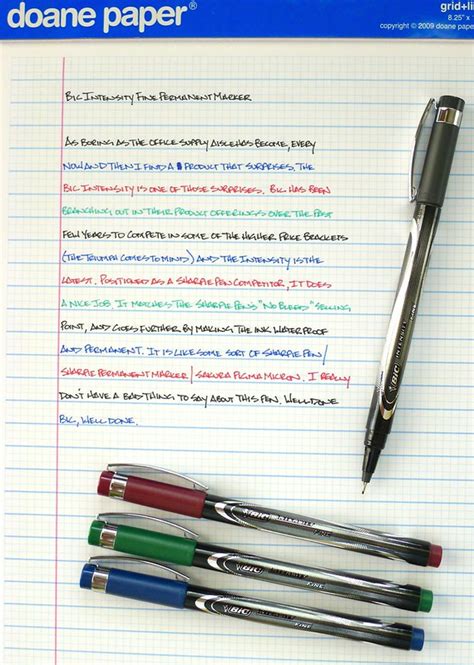 doane paper®
grid+li
8.25" x 1
copyright © 2009 doane paper
Bic Intensity Fine Permanent Marker
As boring as the office supply aisle has become, every
now and then I find a product that surprises. The
Bic Intensity is one of those surprises. Bic has been
branching out in their product offerings over the past
few years to compete in some of the higher price brackets
(the Triumph comes to mind) and the Intensity is the
latest. Positioned as a Sharpie Pen competitor, it does
a nice job. It matches the Sharpie Pens "no bleed" selling
point, and goes further by making the ink waterproof
and permanent. It is like some sort of Sharpie Pen/
Sharpie Permanent Marker/Sakura Pigma Micron. I really
don't have a bad thing to say about this pen. Well done
Bic, well done.
BIC INTENSITY FINE
BIC INTENSITY FINE
BIC INTENSITY FINE
BIC INTENSITY FINE